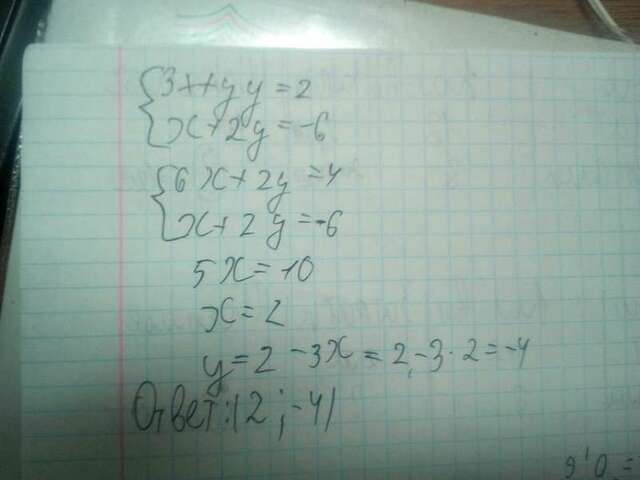 3x+yy=2
x+2y=-6
6x+2y=4
x+2y=-6
5x=10
x=2
y=2-3x=2,-3·2=-4
Ответ:(2;-4)